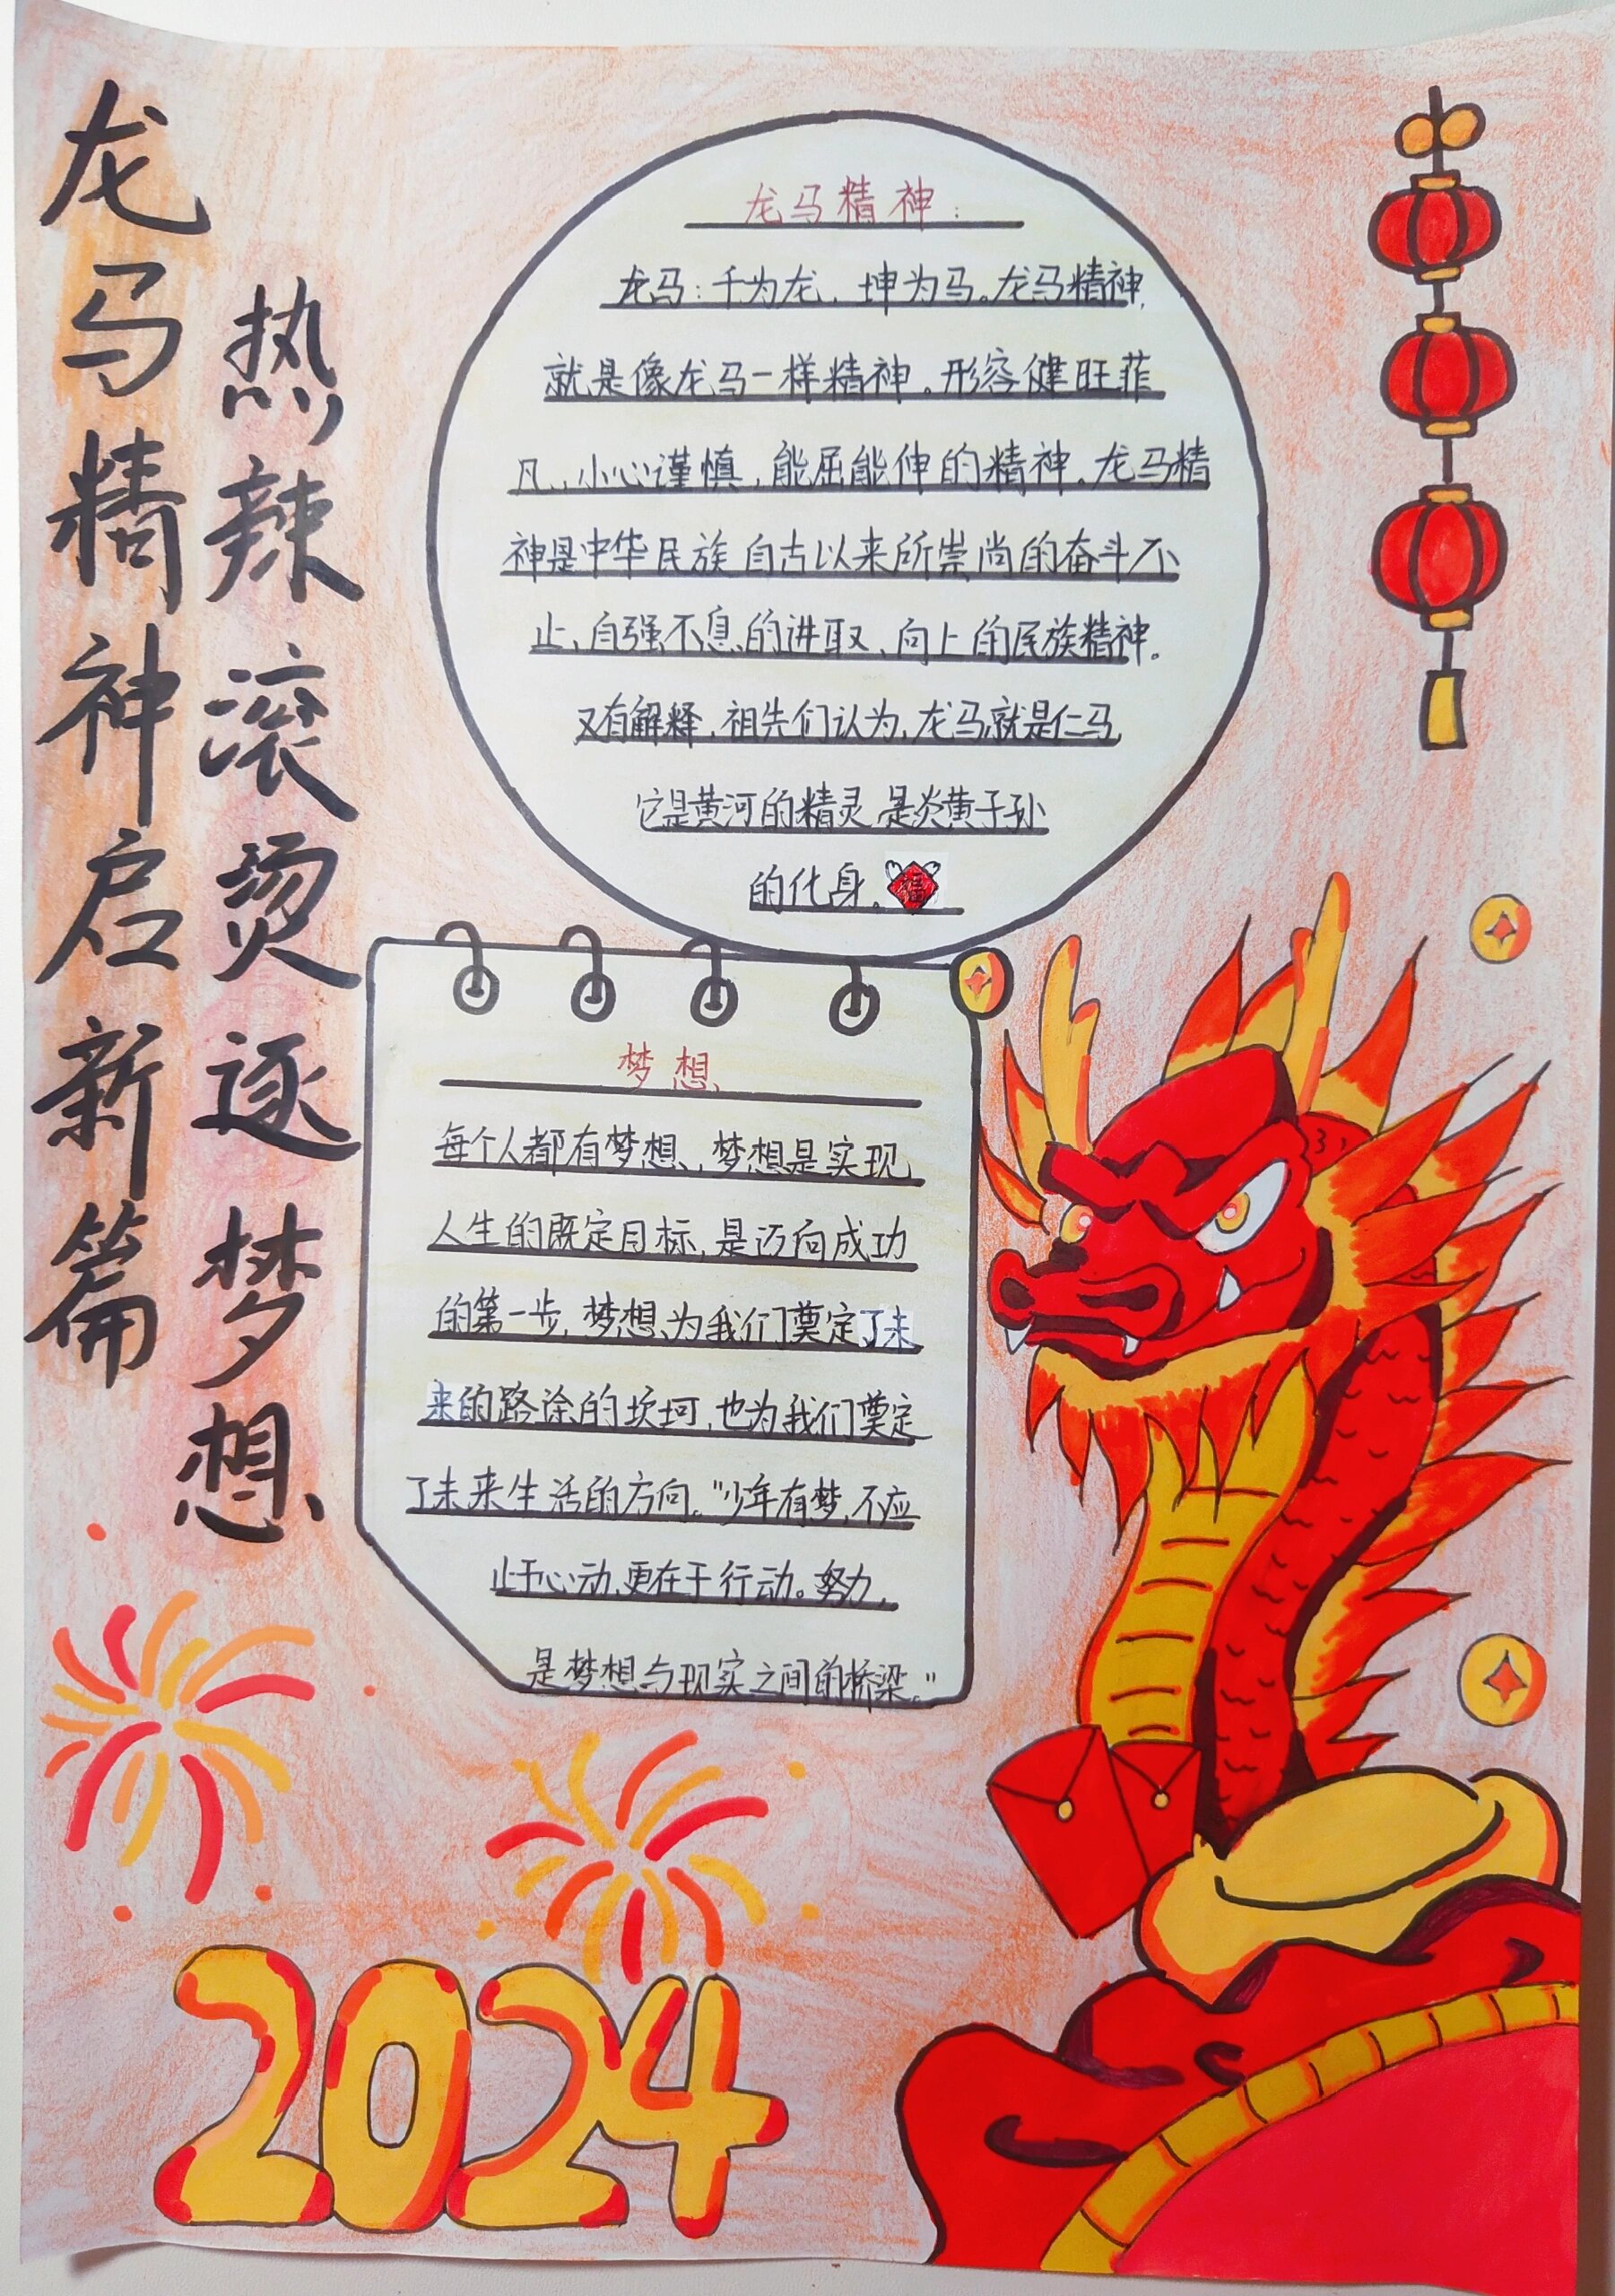 龙马精神启新篇
热辣滚烫逐梦想
龙马精神：
龙马：千为龙，坤为马。龙马精神，
就是像龙马一样精神。形容健旺菲
凡、小心谨慎，能屈能伸的精神。龙马精
神是中华民族自古以来所崇尚的奋斗不
止、自强不息的进取、向上的民族精神。
又有解释，祖先们认为，龙马就是仁马，
它是黄河的精灵，是炎黄子孙
的化身。福
梦想
每个人都有梦想，梦想是实现
人生的既定目标，是迈向成功
的第一步，梦想为我们奠定了未
来的路途的坎坷，也为我们奠定
了未来生活的方向。"少年有梦，不应
止于心动，更在于行动。努力，
是梦想与现实之间的桥梁。"
2024